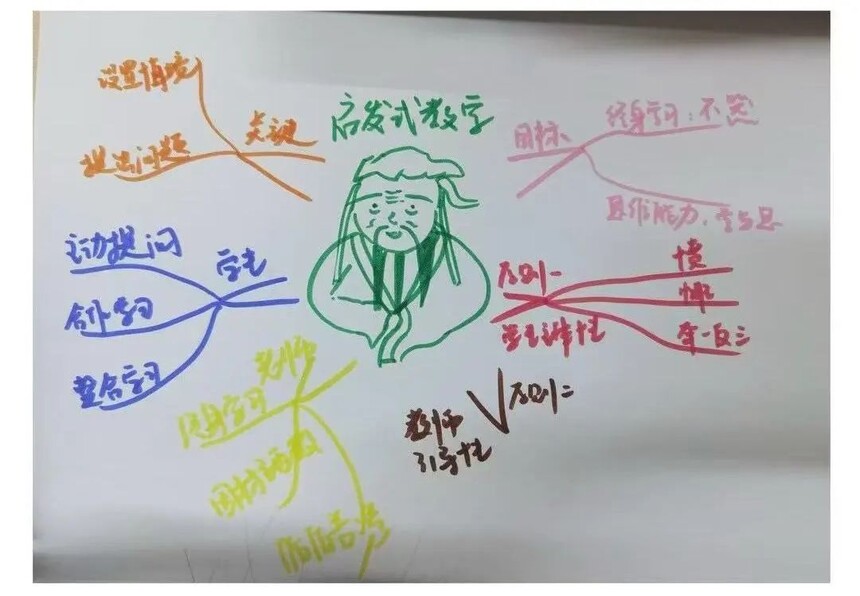 启发式教学
关键
设置情境
提出问题
目标
终身学习：不怠
思与
学生
主动提问
合作学习
整合学习
原则一
学生主体性
愤
悱
举一反三
老师
终身学习
因材施教
循循善
教师
引导性
原则二